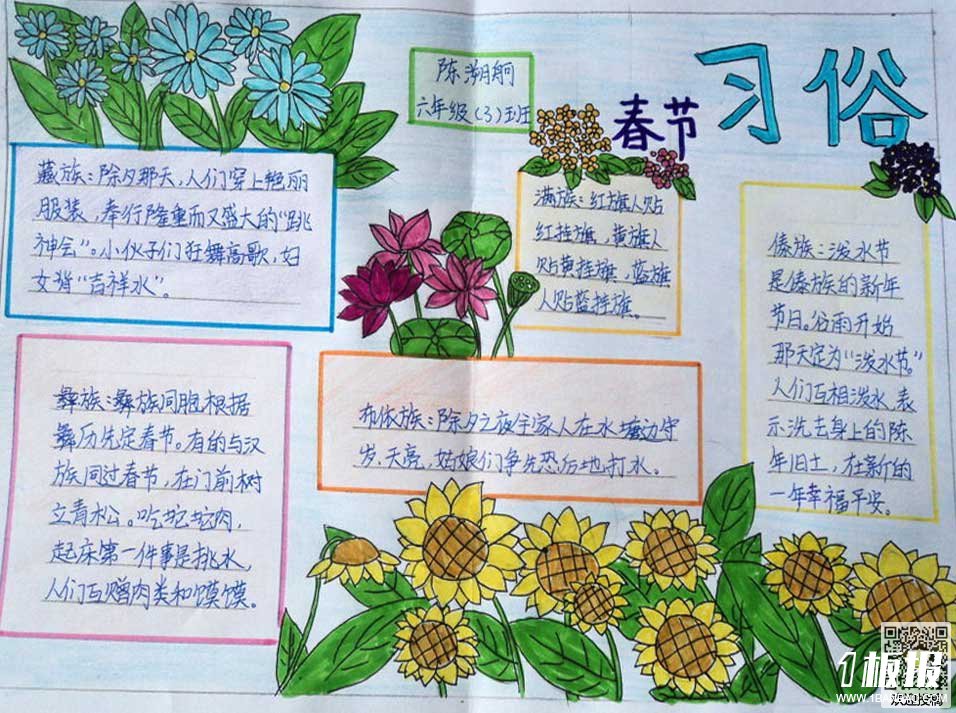 春节 习俗
六年级(3)班
藏族:除夕那天,人们穿上艳丽
服装,奉行隆重而又盛大的“跳
神会”。小伙子们狂舞高歌,妇
女背“吉祥水”。
满族:红旗人贴
红挂旗,黄旗人
贴黄挂旗,蓝旗
人贴蓝挂旗。
傣族:泼水节
是傣族的新年
节日。谷雨开始
那天定为“泼水节。”
人们互相泼水,表
示洗去身上的陈
年旧土,在新的
一年幸福平安。
彝族:彝族同胞根据
彝历先定春节。有的与汉
族同过春节,在门前树
立青松。吃坨坨肉,
起床第一件事是挑水,
人们互赠肉类和馍馍。
布依族:除夕之夜全家人在水塘边守
岁,天亮,姑娘们争先恐后地打水。
板报
WWW.1BANBAO.COM
欢迎投稿